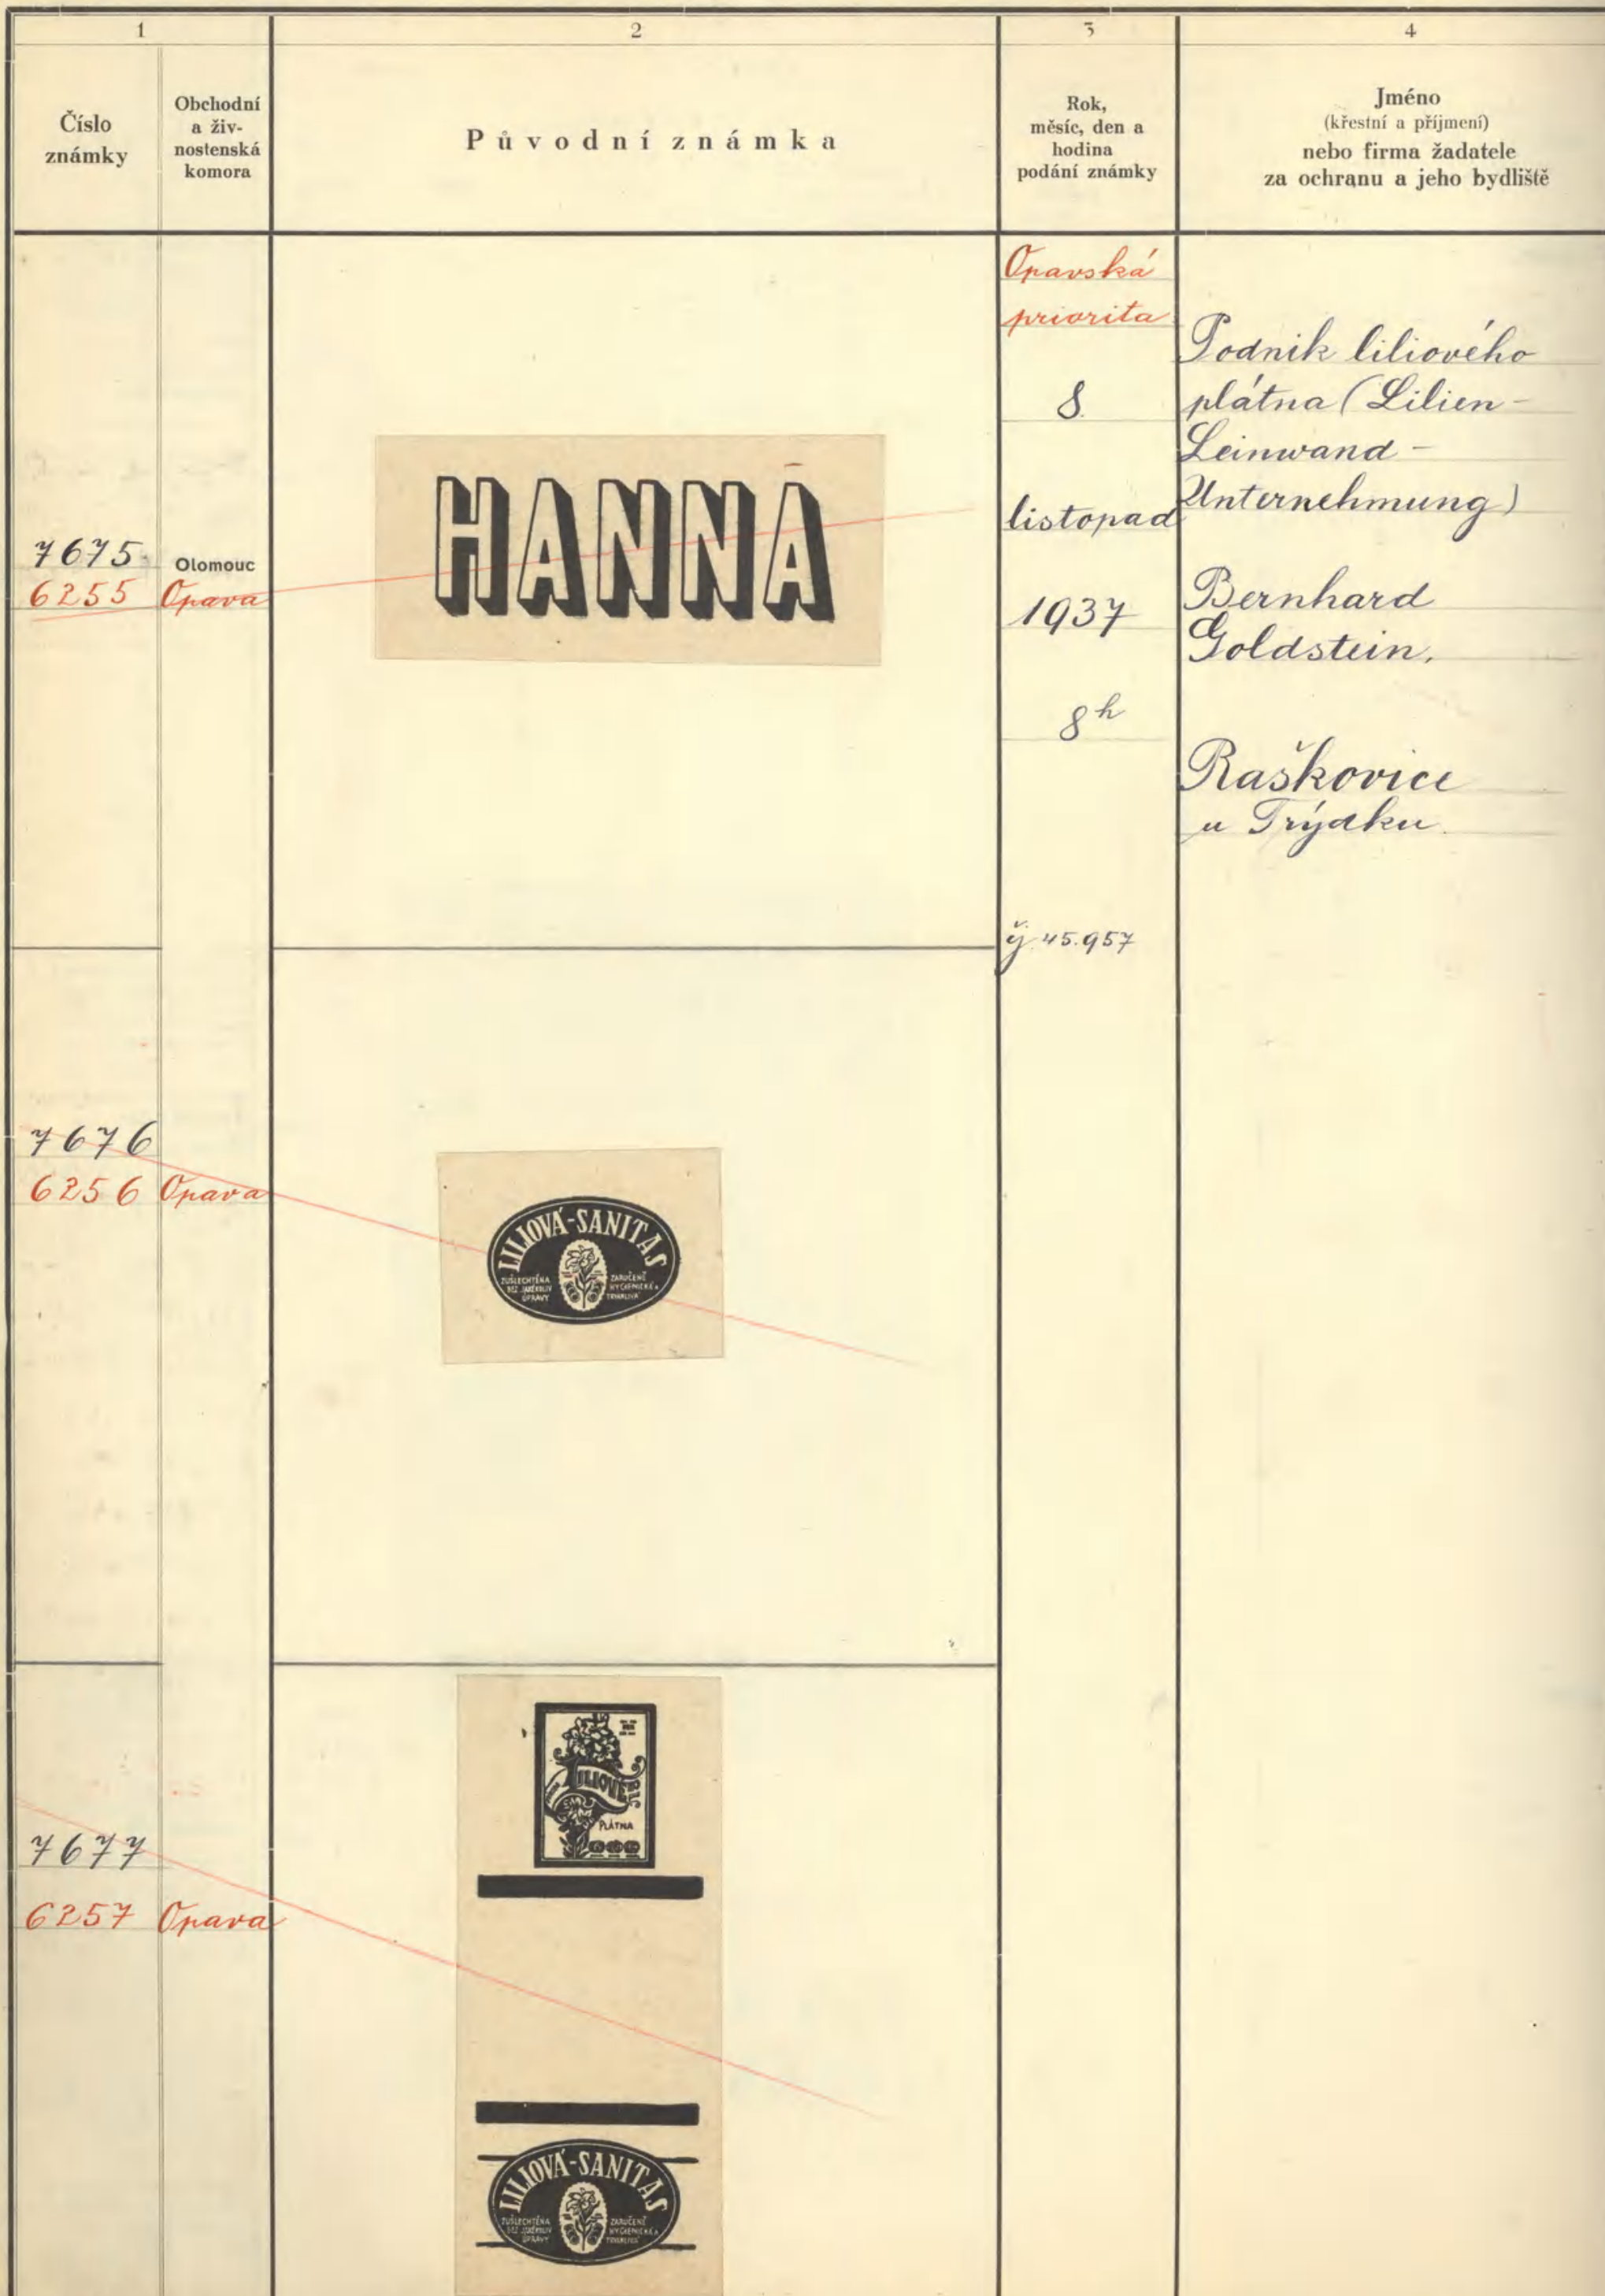 1
2
3
4
Číslo
známky
Obchodní
a živ-
nostenská
komora
Původní známka
Rok,
měsíc, den a
hodina
podání známky
Jméno
(křestní a příjmení)
nebo firma žadatele
za ochranu a jeho bydliště
7675
6255
Olomouc
Opava
HANNA
Opavská
priorita
8.
listopad
1937
8h
čj. 45.957
Podnik liliového
plátna (Lilien-
Leinwand-
Unternehmung)
Bernhard
Goldstein,
Raškovice
u Frýdku.
7676
6256 Opava
LILIOVÁ-SANITAS
ZUŠLECHTĚNA
BEZ JAKÉKOLIV
ÚPRAVY
ZARUČENĚ
HYGIENICKÁ a
TRVANLIVÁ
7677
6257 Opava
LILIOVÉ
PLÁTNA
LILIOVÁ-SANITAS
ZUŠLECHTĚNA
BEZ JAKÉKOLIV
ÚPRAVY
ZARUČENĚ
HYGIENICKÁ a
TRVANLIVÁ